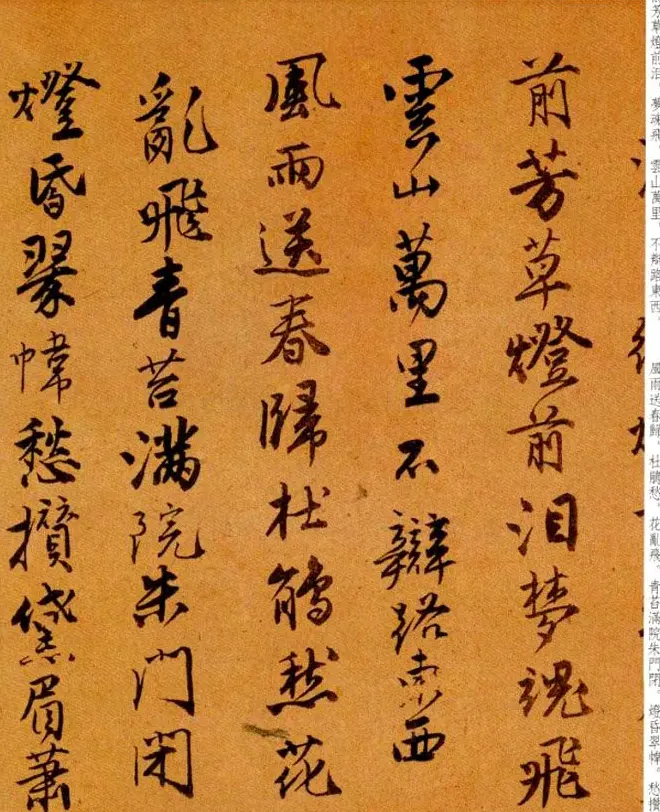 芳草燈前泪。夢魂飛。雲山萬里。不辯路東西。　風雨送春歸。杜鵑愁。花亂飛。青苔滿院朱門閉。燈昏翠幃。愁攢
前芳草燈前泪夢魂飛
雲山萬里不辯路東西
風雨送春歸杜鵑愁花
亂飛青苔滿院朱門閉
燈昏翠幃愁攢黛眉蕭